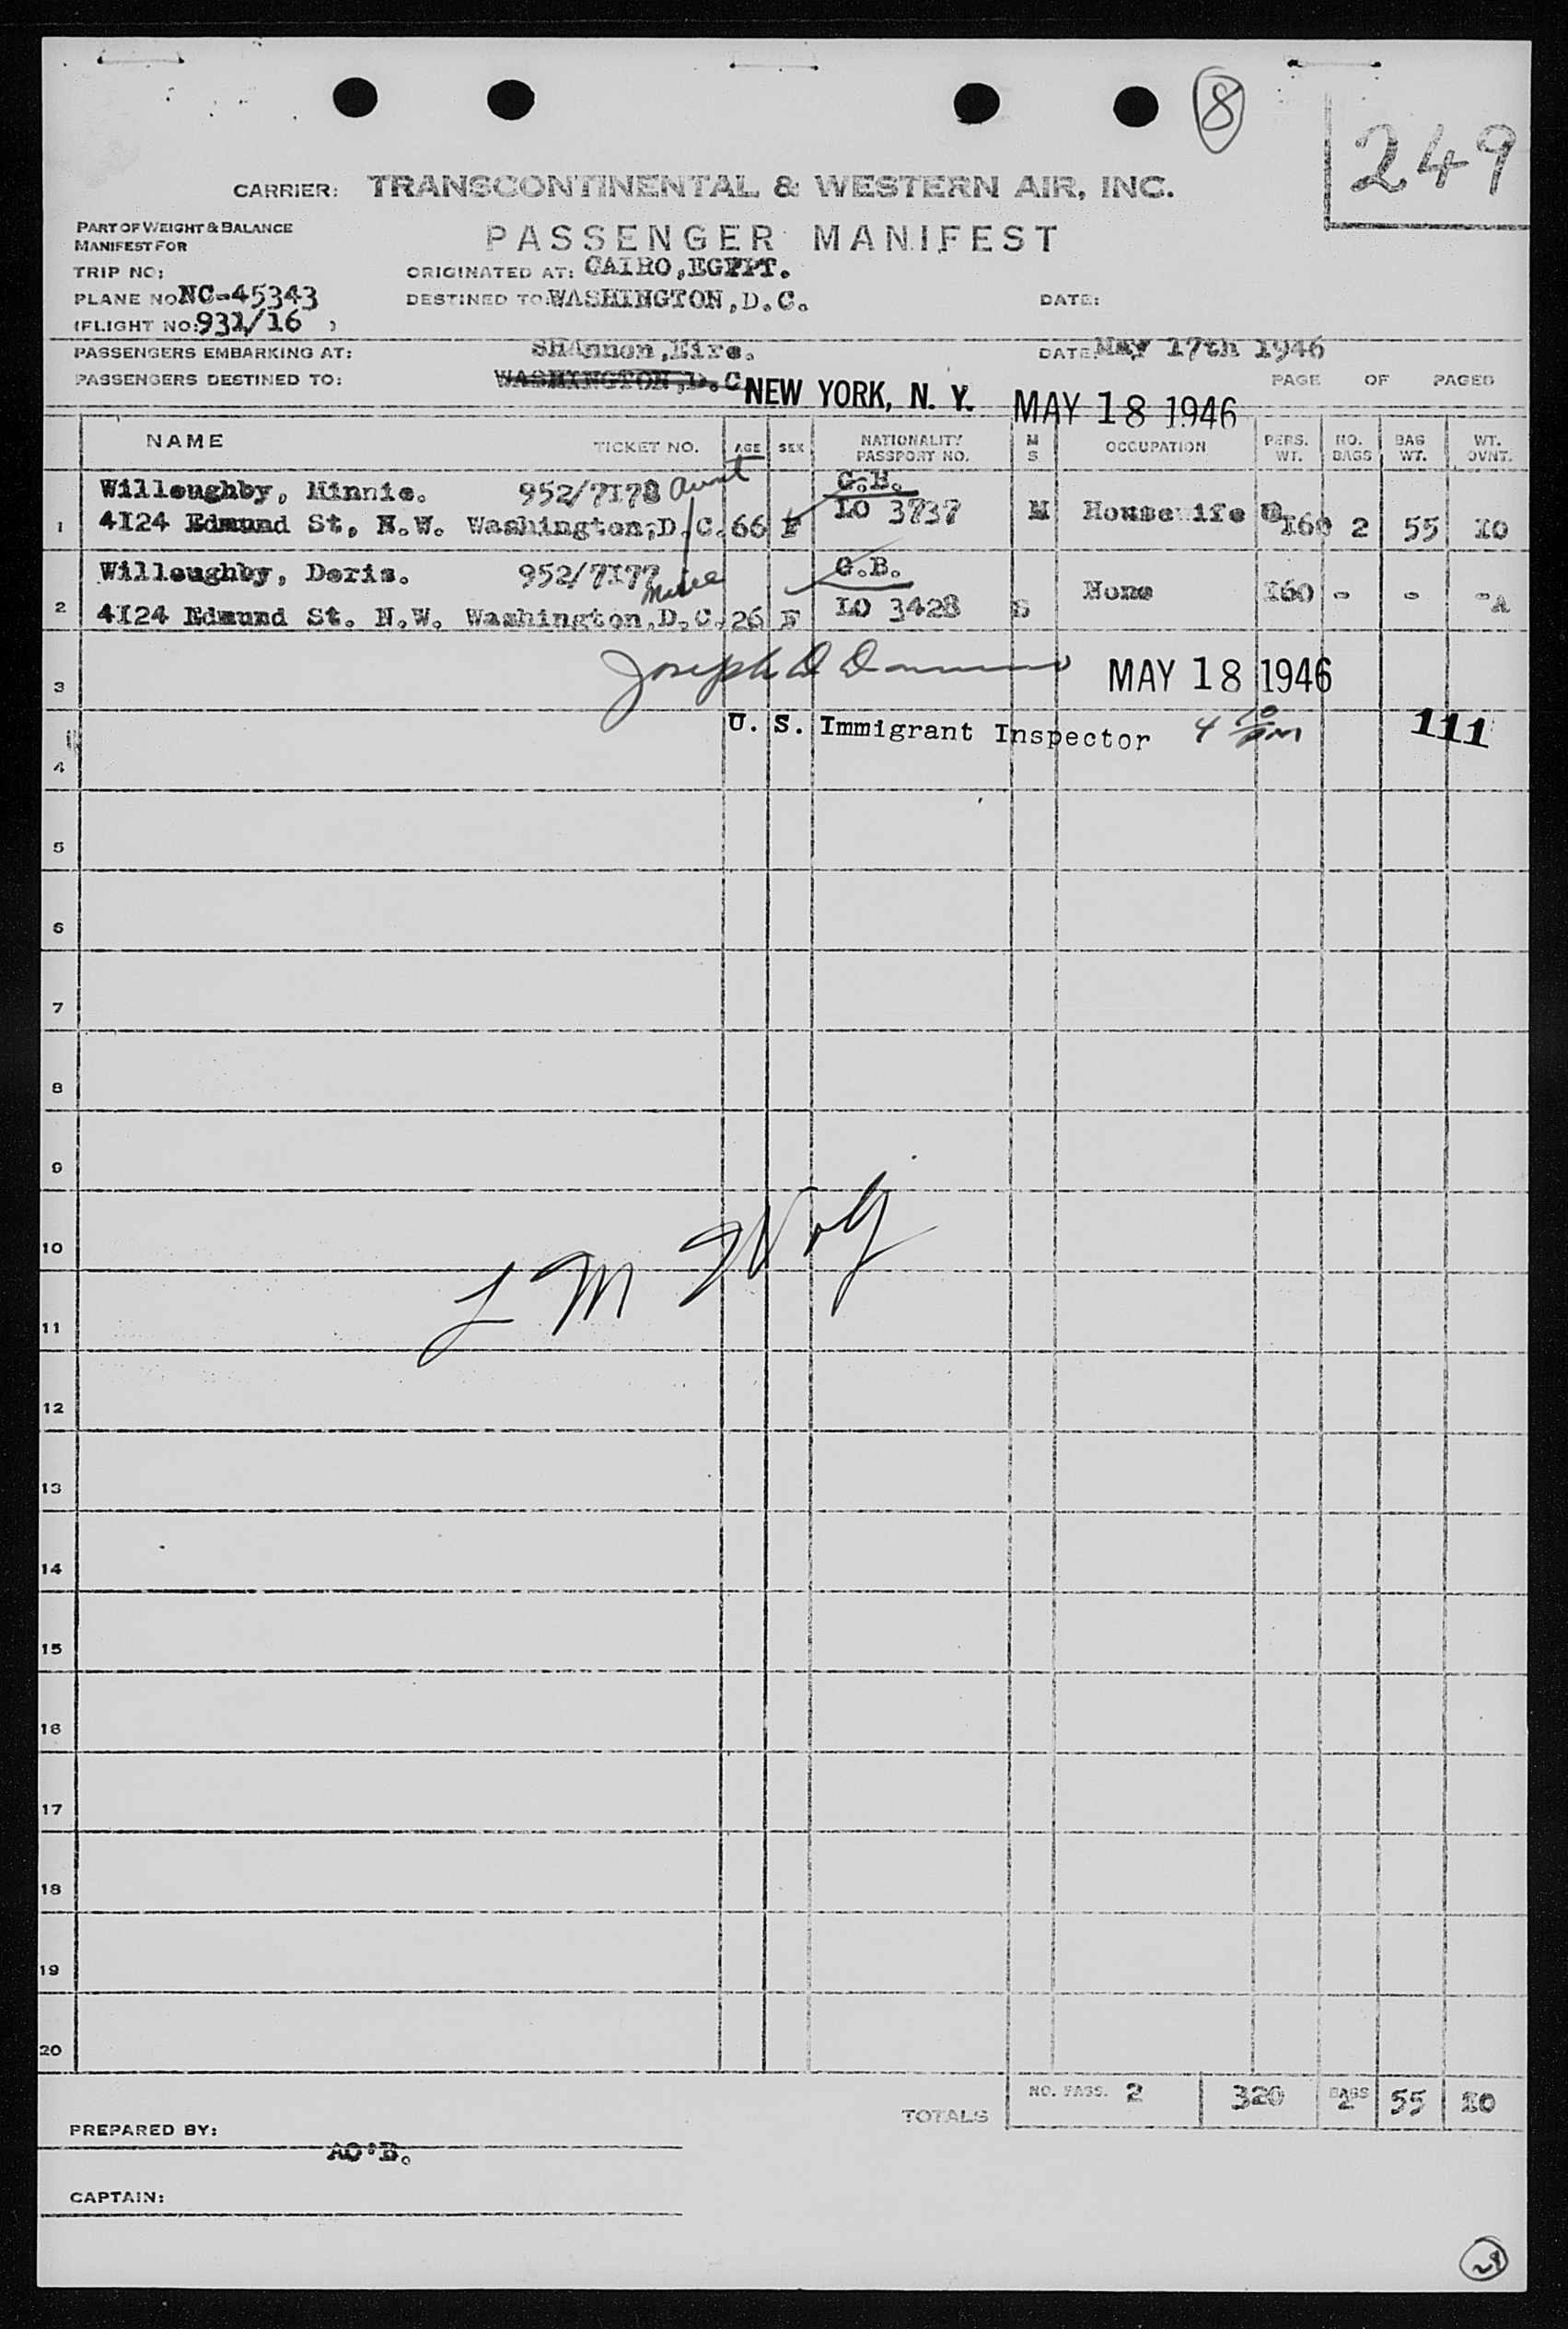 8
249
CARRIER: TRANSCONTINENTAL & WESTERN AIR, INC.
PART OF WEIGHT & BALANCE
MANIFEST FOR
PASSENGER MANIFEST
TRIP NO:
ORIGINATED AT: CAIRO,EGPPT.
PLANE NO: NC-45343
DESTINED TO: WASHINGTON,D.C.
DATE:
(FLIGHT NO: 931/16 )
PASSENGERS EMBARKING AT: SHAnnon,Eire.
DATE: May 17th 1946
PASSENGERS DESTINED TO: WASHINGTON,D.C. NEW YORK, N. Y. MAY 18 1946
PAGE OF PAGES
NAME TICKET NO. AGE SEX NATIONALITY PASSPORT NO. M S OCCUPATION PERS. WT. NO. BAGS BAG WT. WT. OVNT.
Willoughby, Minnie. 952/7178 aunt G.B.
1 4124 Edmund St, N.W. Washington,D.C. 66 F LO 3737 M Housewife 160 2 55 10
Willoughby, Doris. 952/7177 niece G.B.
2 4124 Edmund St. N.W. Washington,D.C. 26 F LO 3428 S None 160 - - -
3 Joseph D MAY 18 1946
U. S. Immigrant Inspector 4 10 PM 111
4
5
6
7
8
9
10
L M
11
12
13
14
15
16
17
18
19
20
TOTALS NO. PASS. 2 320 BAGS 2 55 10
PREPARED BY: AO'B.
CAPTAIN: